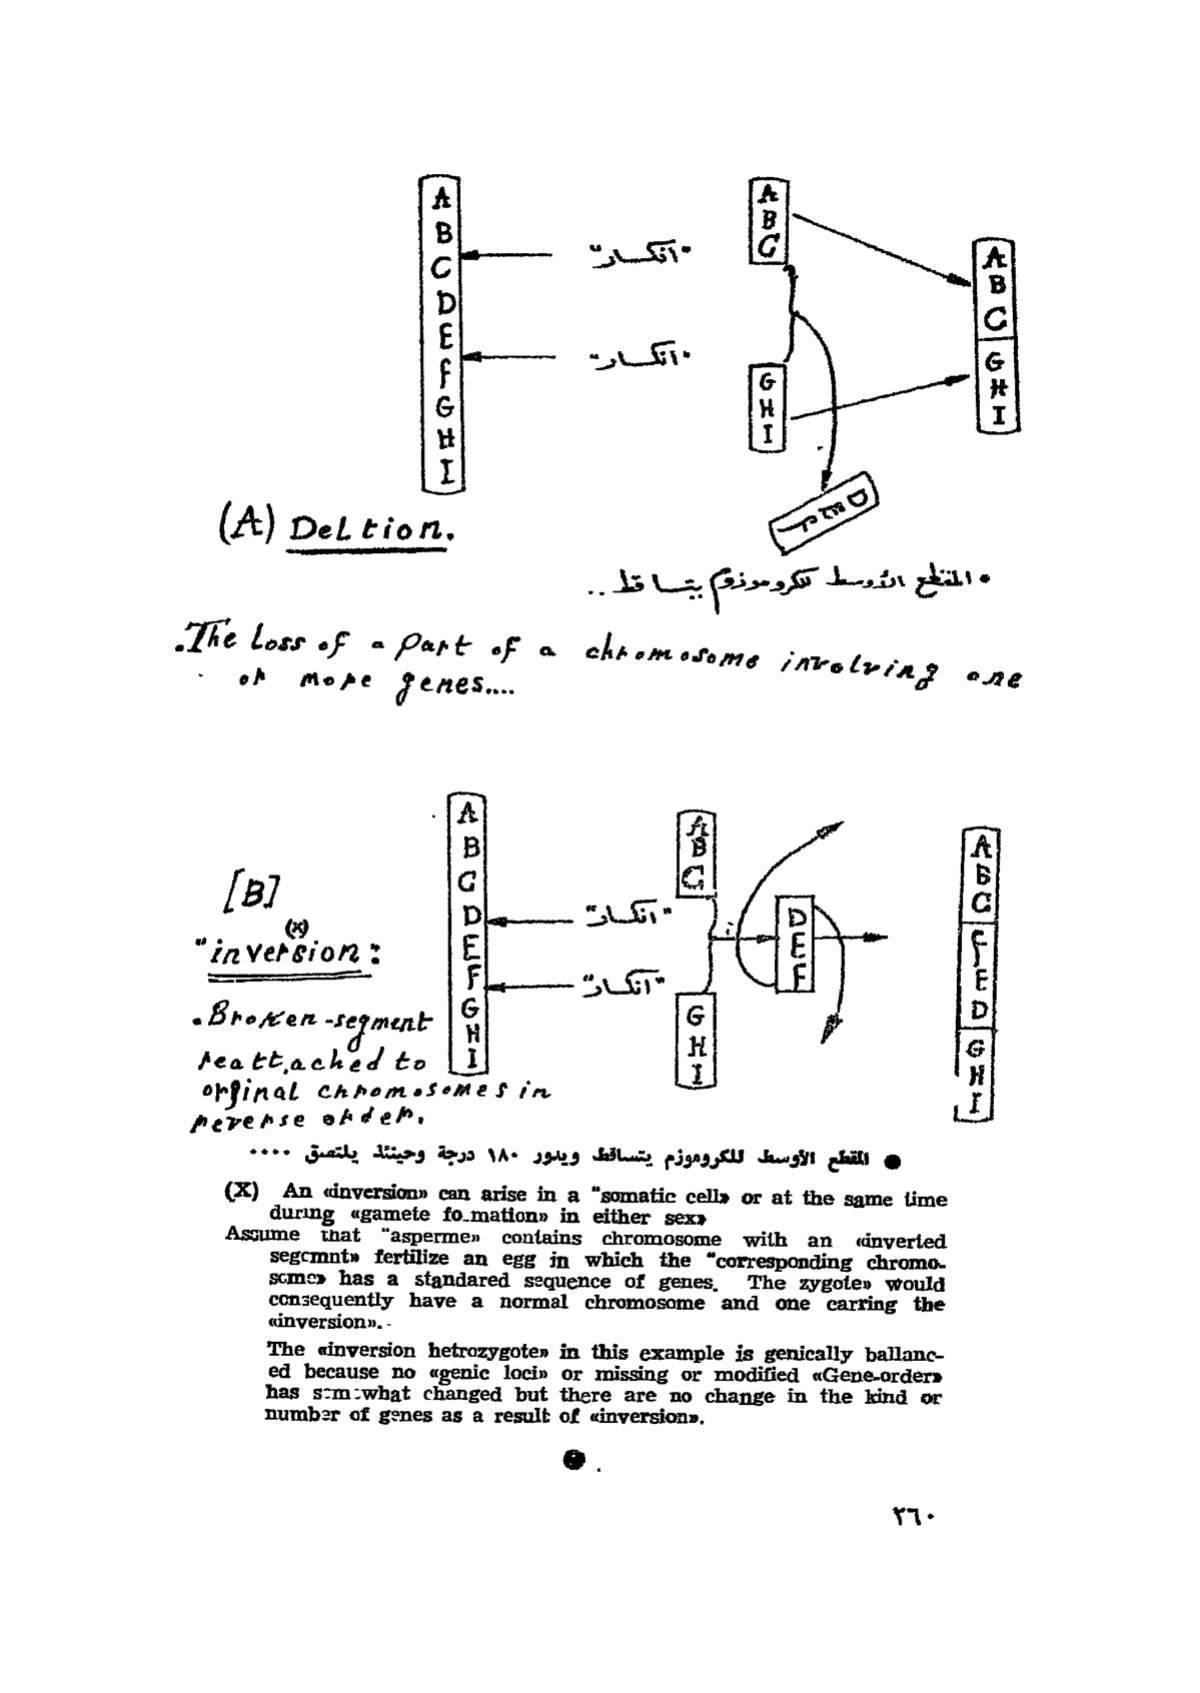 A
B
C
D
E
F
G
H
I
"انكسار"
"انكسار"
A
B
C
G
H
I
D
E
F
A
B
C
G
H
I
(A) DeLtion.
• المقطع الأوسط للكروموزوم يتساقط ..
.The Loss of a part of a chromosome involving one
or more genes....
A
B
C
D
E
F
G
H
I
"انكسار"
"انكسار"
A
B
C
G
H
I
D
E
F
A
B
C
F
E
D
G
H
I
[B]
(x)
"inversion:
.Broken-segment
reattached to
orginal chromosomes in
reverse order.
● المقطع الأوسط للكروموزم يتساقط ويدور ١٨٠ درجة وحينئذ يلتصق ....
(X) An «inversion» can arise in a "somatic cell» or at the same time
during «gamete fo.mation» in either sex»
Assume that "asperme» contains chromosome with an «inverted
segcmnt» fertilize an egg in which the "corresponding chromo-
scme» has a standared sequence of genes. The zygote» would
consequently have a normal chromosome and one carring the
«inversion». -
The «inversion hetrozygote» in this example is genically ballanc-
ed because no «genic loci» or missing or modified «Gene-order»
has somewhat changed but there are no change in the kind or
number of genes as a result of «inversion».
٣٦٠